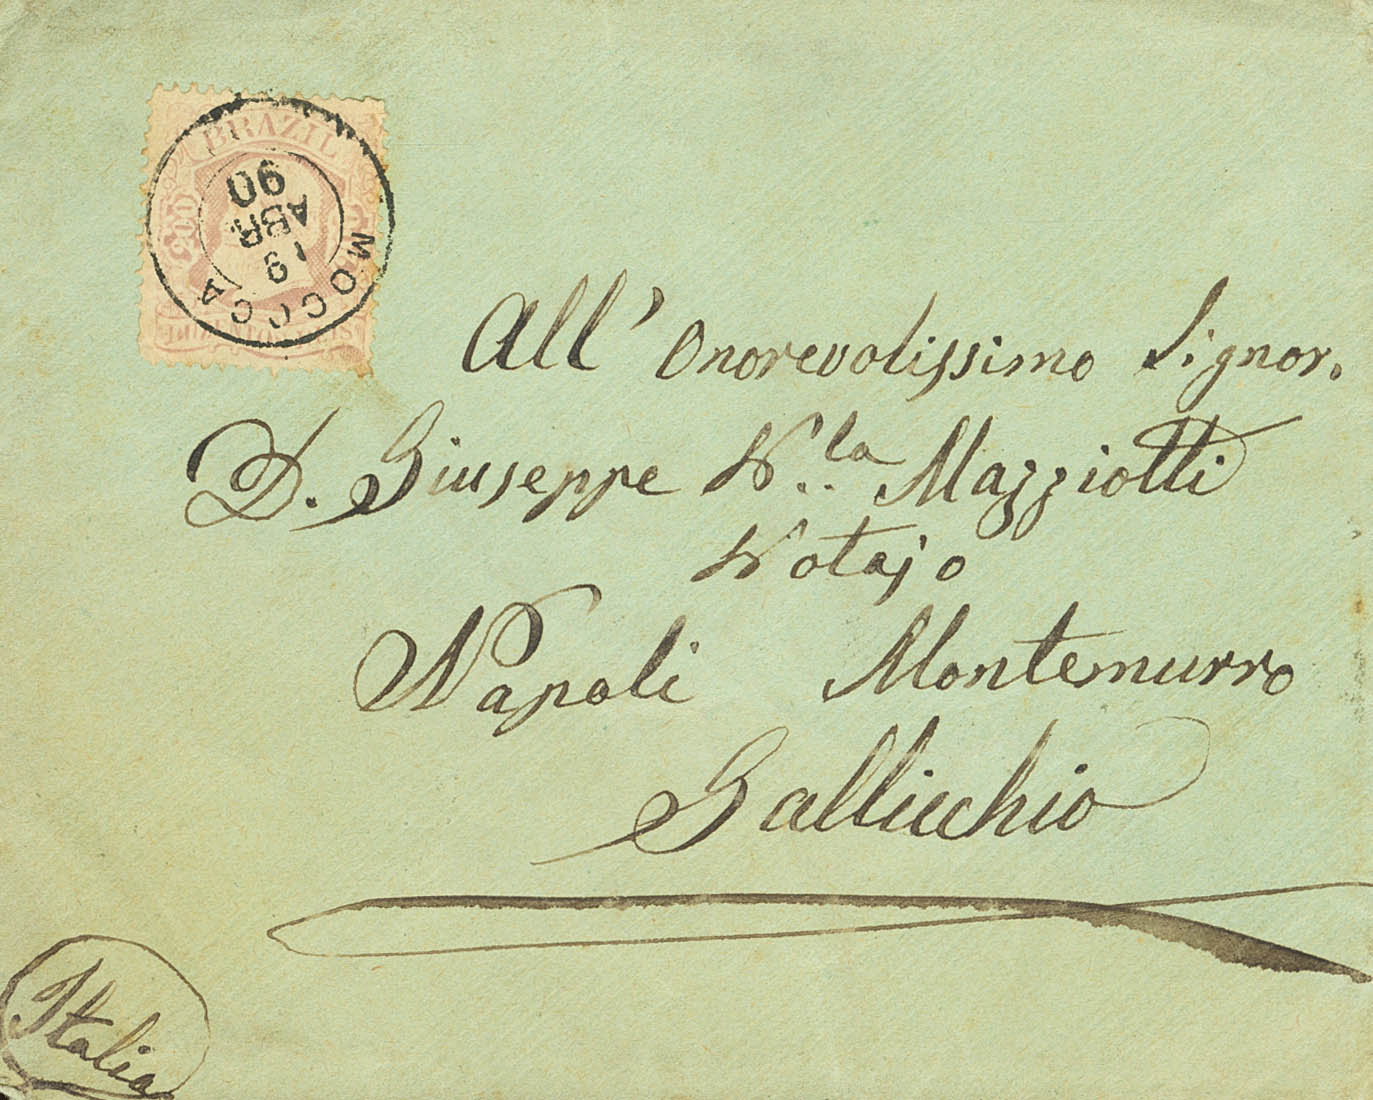 BRAZIL
200
DUZENTOS REIS
MOCOCA
19
ABR
90
All' Onorevolissimo Signor.
D. Giuseppe N.la Mazziotti
Notajo
Napoli Montemurro
Gallicchio
Italia